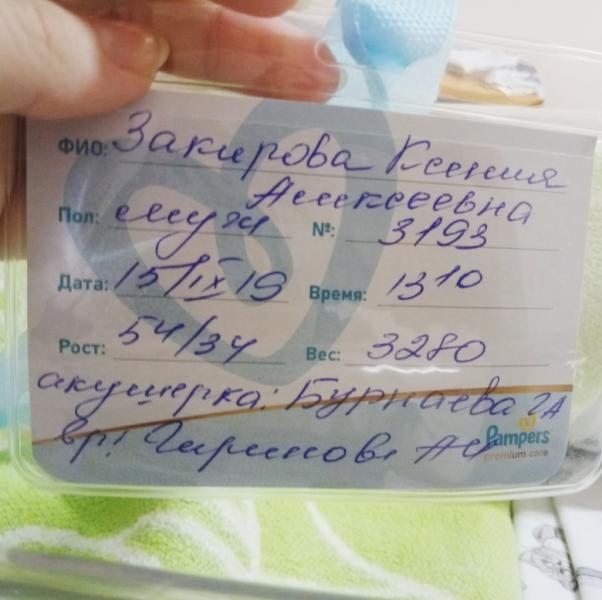 ФИО: Закирова Ксения
Алексеевна
Пол: муж №: 3193
Дата: 15/IX 19 Время: 13 10
Рост: 54/34 Вес: 3280
акушерка: Бурнаева ГА
вр: Гиринов
Pampers
premium care